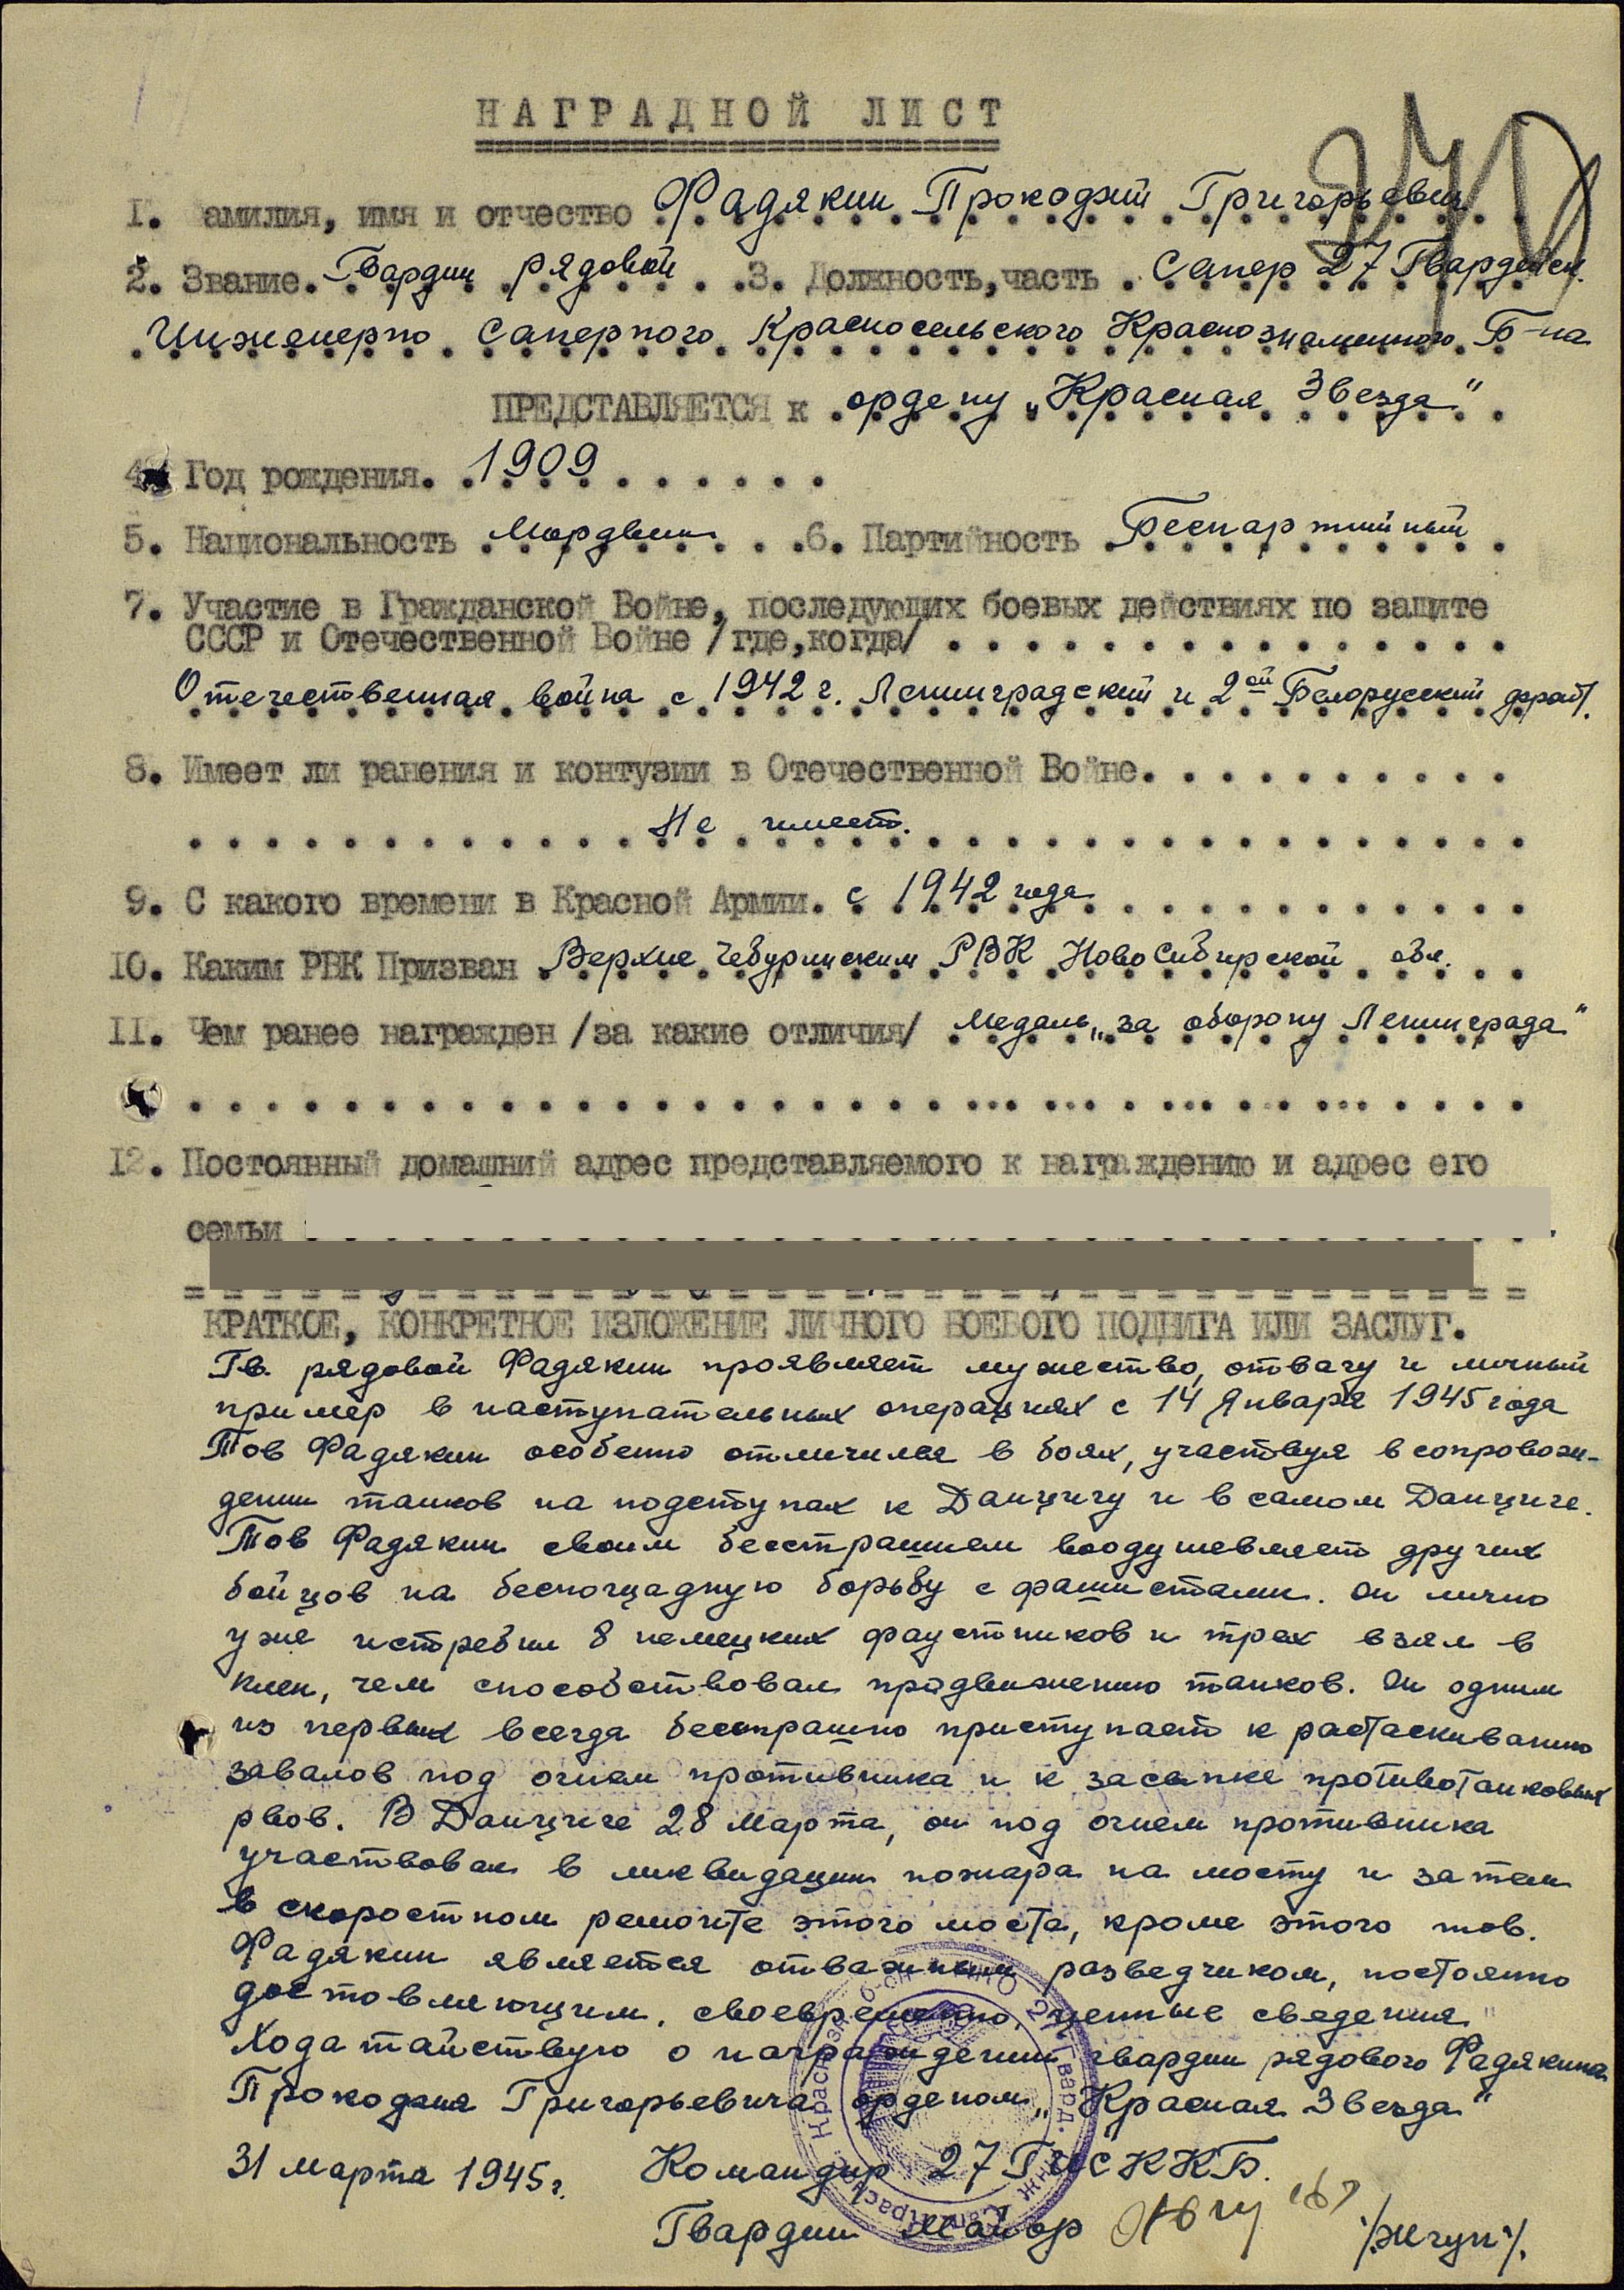 НАГРАДНОЙ ЛИСТ
1. амилия, имя и отчество Фадякин Прокофий Григорьевич
2. Звание. Гвардии рядовой 3. Должность, часть Сапер 27 Гвардейск.
Инженерно Саперного Красносельского Краснознаменного Б-на
ПРЕДСТАВЛЯЕТСЯ к ордену „Красная Звезда"
4. Год рождения. 1909
5. Национальность Мордвин 6. Партийность Беспартийный
7. Участие в Гражданской Войне, последующих боевых действиях по защите
СССР и Отечественной Войне /где, когда/
Отечественная война с 1942 г. Ленинградский и 2ой Белорусский фронт.
8. Имеет ли ранения и контузии в Отечественной Войне.
Не имеет.
9. С какого времени в Красной Армии. с 1942 года
10. Каким РВК Призван Верхне Чебулинским РВК Новосибирской обл.
11. Чем ранее награжден /за какие отличия/ Медаль „за оборону Ленинграда"
12. Постоянный домашний адрес представляемого к награждению и адрес его
семьи
КРАТКОЕ, КОНКРЕТНОЕ ИЗЛОЖЕНИЕ ЛИЧНОГО БОЕВОГО ПОДВИГА ИЛИ ЗАСЛУГ.
Гв. рядовой Фадякин проявляет мужество, отвагу и личный
пример в наступательных операциях с 14 Января 1945 года
Тов Фадякин особенно отличился в боях, участвуя в сопровож-
дении танков на подступах к Данцигу и в самом Данциге.
Тов Фадякин своим бесстрашием воодушевляет других
бойцов на беспощадную борьбу с фашистами. Он лично
уже истребил 8 немецких фаустников и трех взял в
плен, чем способствовал продвижению танков. Он одним
из первых всегда бесстрашно приступает к растаскиванию
завалов под огнем противника и к засыпке противотанковых
рвов. В Данциге 28 марта, он под огнем противника
участвовал в ликвидации пожара на мосту и затем
в скоростном ремонте этого моста, кроме этого тов.
Фадякин является отважным разведчиком, постоянно
доставляющим, своевременно, ценные сведения
Ходатайствую о награждении гвардии рядового Фадякина
Прокофия Григорьевича орденом „Красная Звезда"
31 марта 1945 г. Командир 27 ГИСККБ.
Гвардии Майор /Жигун/.